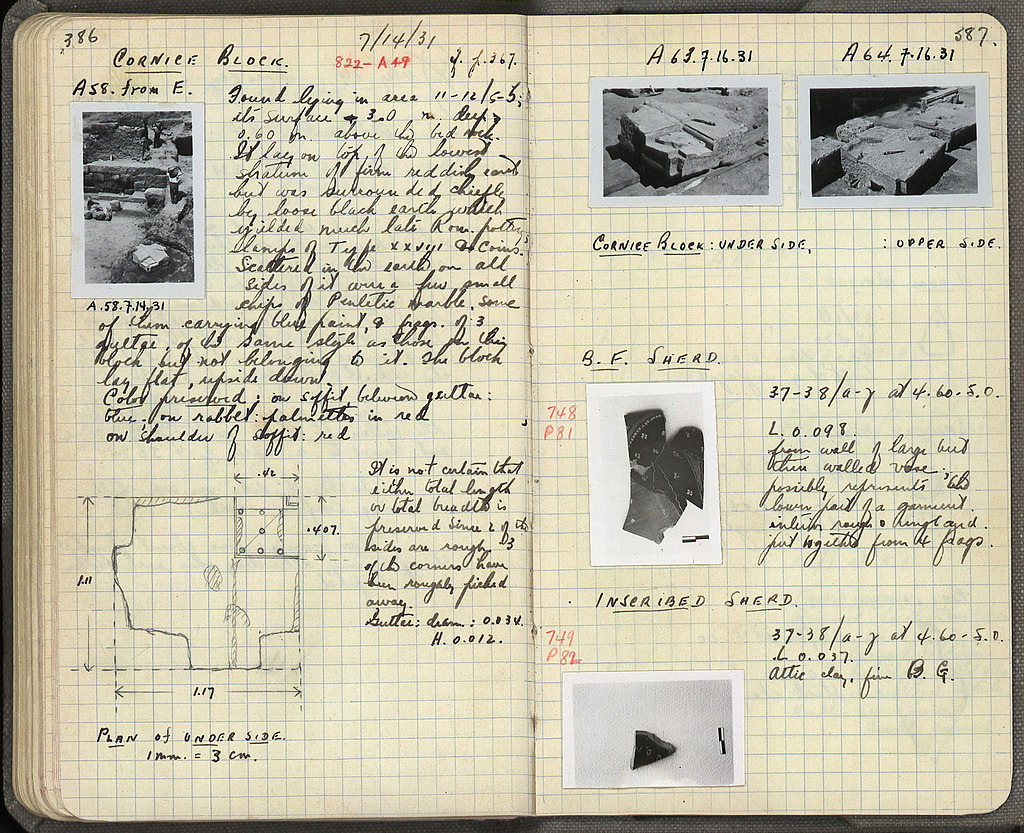 386
7/14/31
CORNICE BLOCK.
822-A49
cf. p. 367.
A58. from E.
A.58.7.14.31
Found lying in area 11-12/
its surface 3.0 m. deep,
0.60 m. above the bed rock.
It lay on top of the lowest
stratum of firm reddish earth
but was surrounded chiefly
by loose black earth which
yielded much late Rom. pottery
lamps of Type XXVII & coins.
Scattered in the earth on all
sides of it were a few small
chips of Pentelic marble, some
of them carrying blue paint, & frags. of 3
guttae, of the same style as those on this
block but not belonging to it. The block
lay flat, upside down.
Color preserved: on soffit, between guttae:
blue; on rabbet: palmettes in red
on shoulder of soffit: red
It is not certain that
either total length
or total breadth is
preserved since 2 of the
sides are rough. 3
of the corners have
been roughly picked
away.
Guttae: diam.: 0.034.
H. 0.012.
.42
.407
1.11
1.17
PLAN of UNDER SIDE.
1 mm. = 3 cm.
587.
A63.7.16.31
A64.7.16.31
CORNICE BLOCK: UNDER SIDE,
: UPPER SIDE.
B.F. SHERD.
748
P81
37-38/α-γ at 4.60-5.0.
L. 0.098.
from wall of large but
thin walled vase;
possibly represents the
lower part of a garment.
put together from 4 frags.
INSCRIBED SHERD.
749
P82
37-38/α-γ at 4.60-5.0.
L 0.037.
Attic clay, fine B.G.